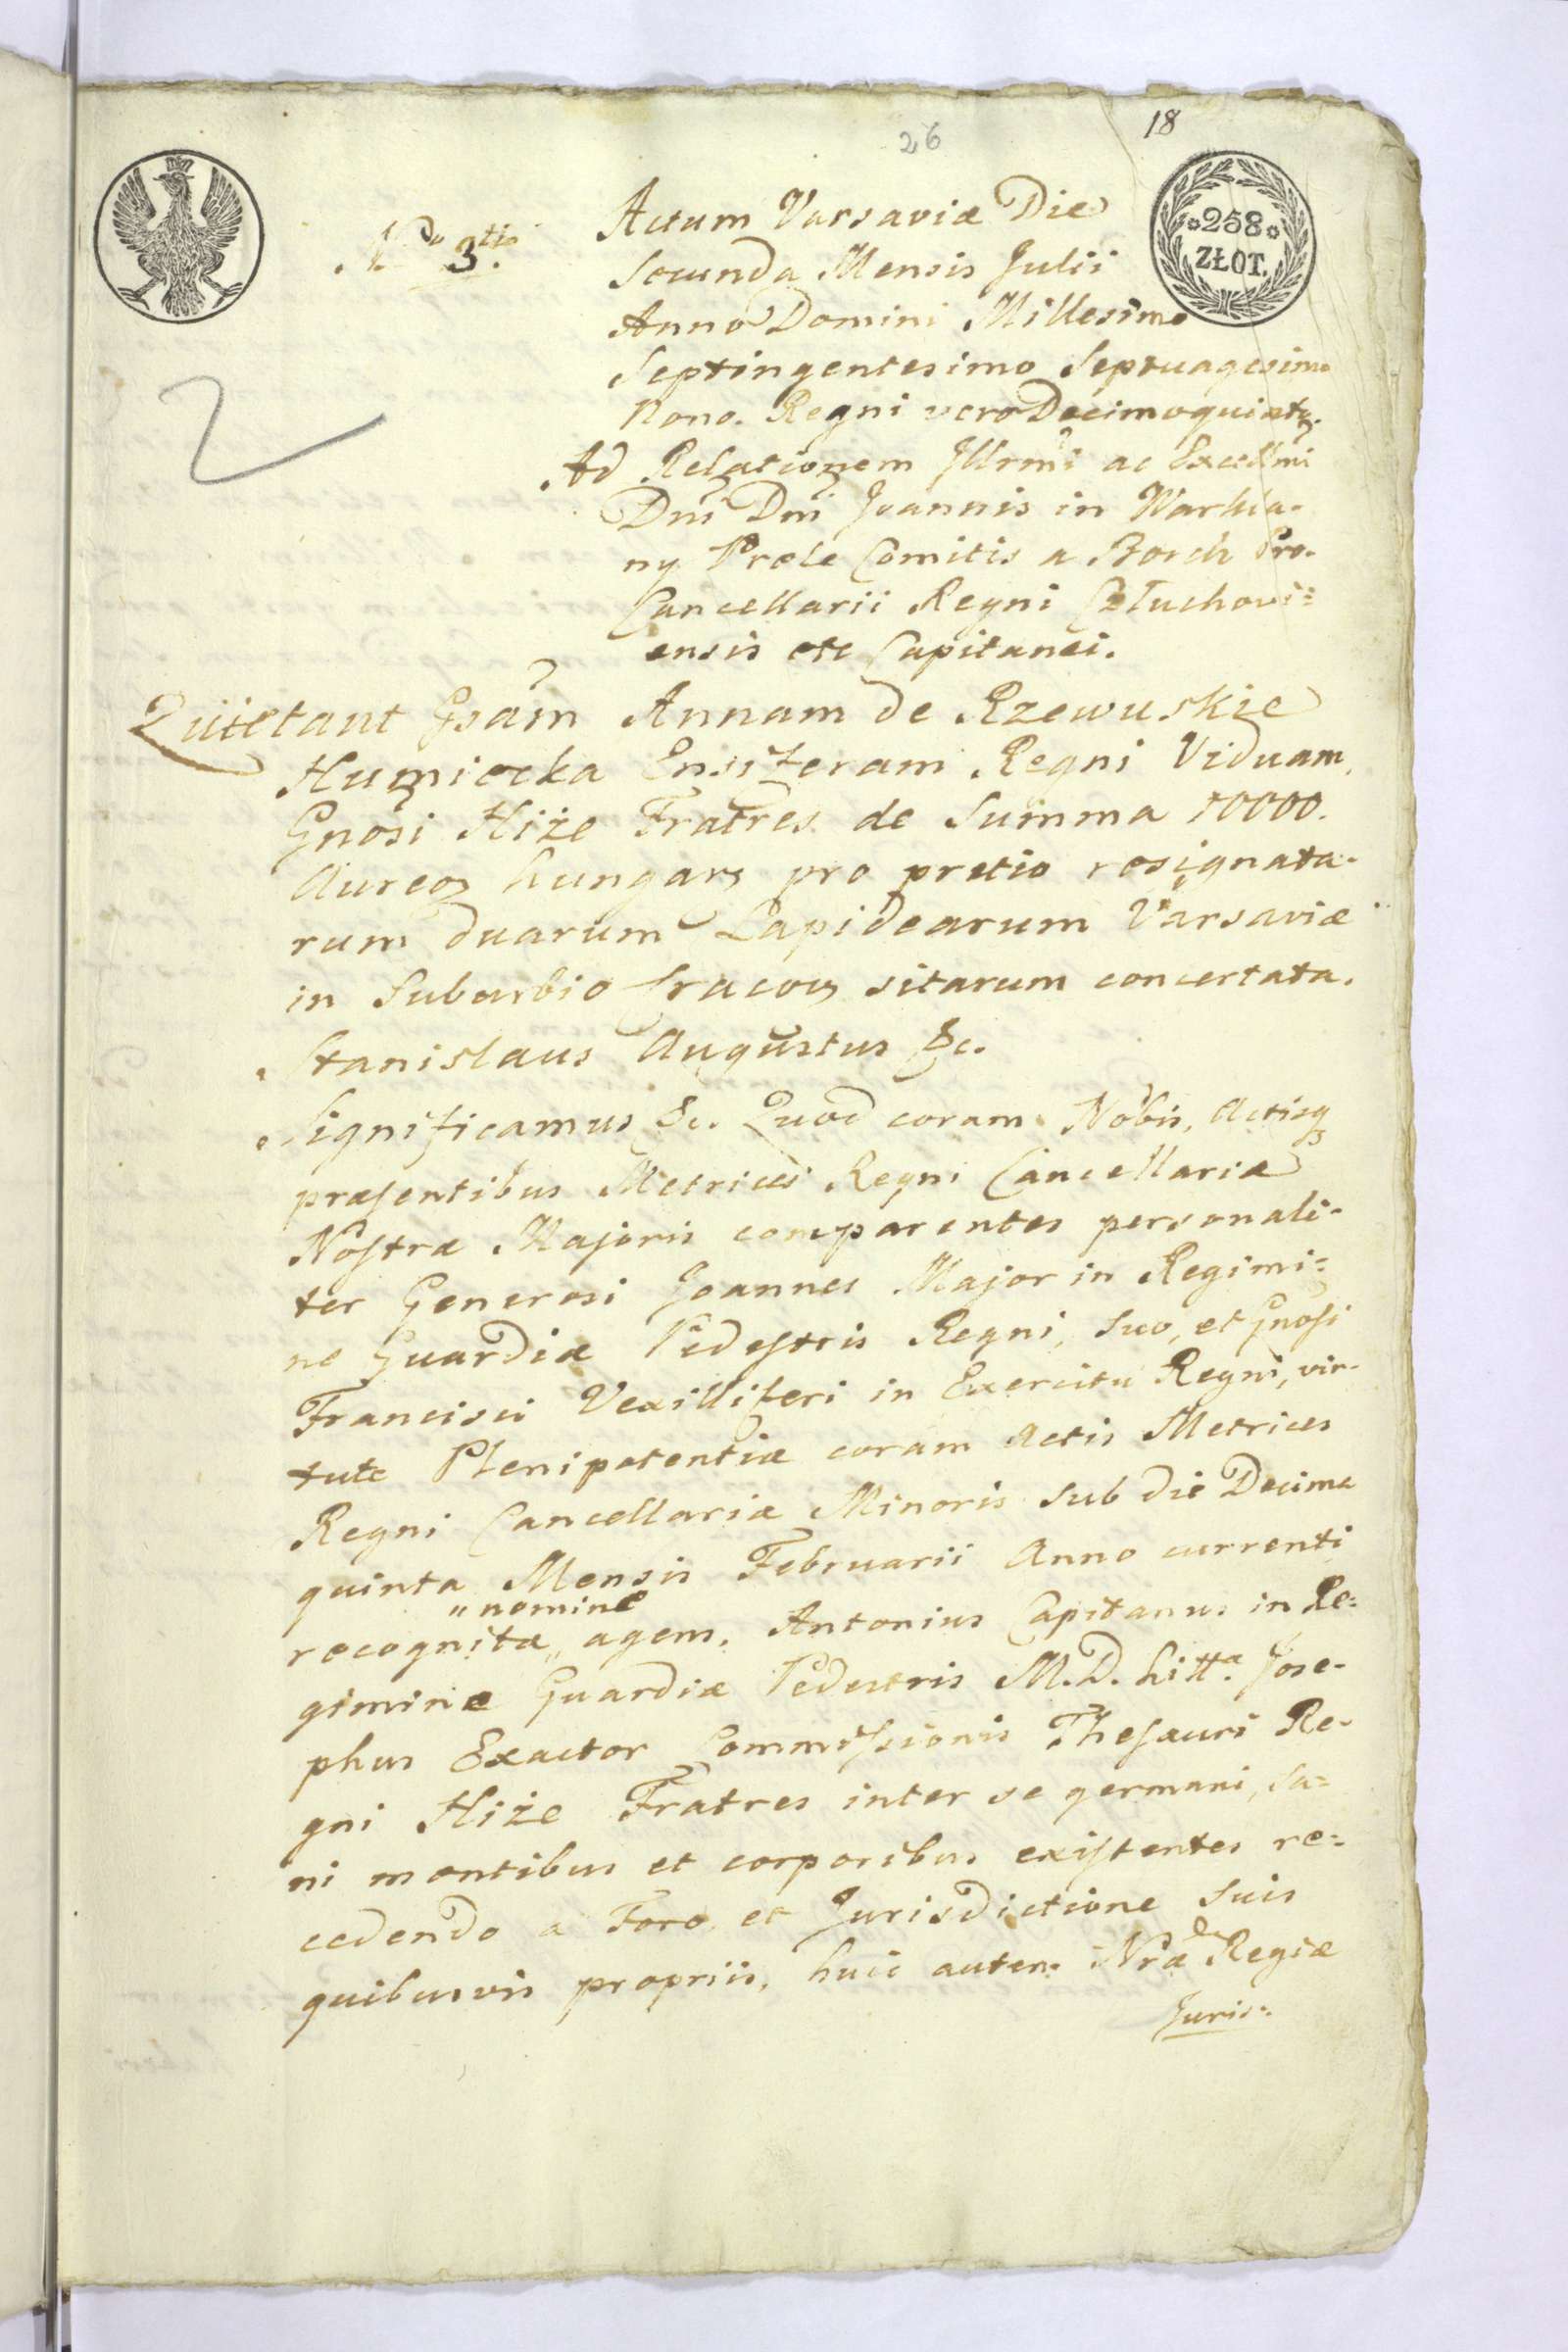 26
18
No 3tio.
*258*
ZŁOT.
Actum Varsaviæ Die
Secunda Mensis Julii
Anno Domini Millesimo
Septingentesimo Septuagesimo
Nono. Regni vero Decimoquinto.
Ad Relationem Jllrmi ac Excellmi
Dni Dni Joannis in Warkla-
ny Prele Comitis a Borch Pro-
Cancellarii Regni Człuchovi=
ensis etc Capitanei.
Quietant Gsam Annam de Rzewuskie
Humiecka Ensiferam Regni Viduam,
Gnosi Hiże Fratres de Summa 10000.
Aureoz hungarz pro pretio resignata-
rum duarum Lapidearum Varsaviæ
in Suburbio Cracovz sitarum concertata.
Stanislaus Augustus &c.
Significamus &c. Quod coram Nobis, Actisq3
præsentibus Metrices Regni Cancellariæ
Nostræ Majoris comparentes personali-
ter Generosi Joannes Major in Regimi=
ne Guardiæ Pedestris Regni, suo, et Gnosi
Francisci Vexilliferi in Exercitu Regni, vir-
tute Plenipotentiæ coram Actis Metrices
Regni Cancellariæ Minoris sub die Decima
quinta Mensis Februarii Anno currenti
„nomine
recognitæ „ agens, Antonius Capitanus in Re=
gimine Guardiæ Pedestris M.D. Littæ. Jose-
phus Exactor Commissionis Thesauri Re-
gni Hiże Fratres inter se germani, sa=
ni mentibus et corporibus existentes re=
cedendo a Foro et Jurisdictione suis
quibusvis propriis, huic autem Nræ Regiæ
Juris=